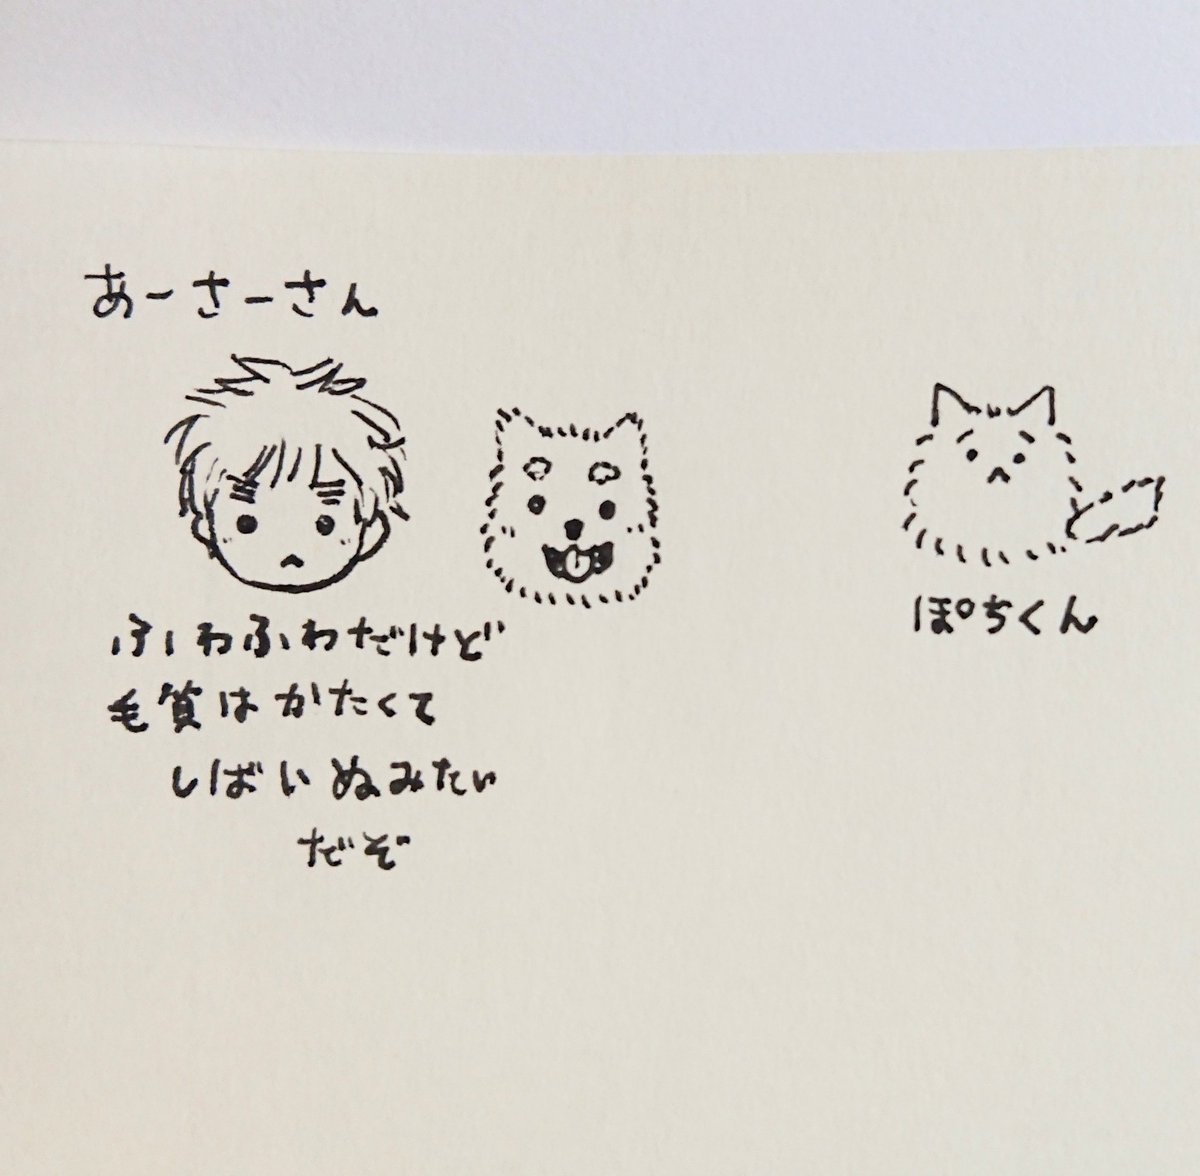 あーさーさん
ふわふわだけど
毛質はかたくて
しばいぬみたい
だぞ
ぽちくん